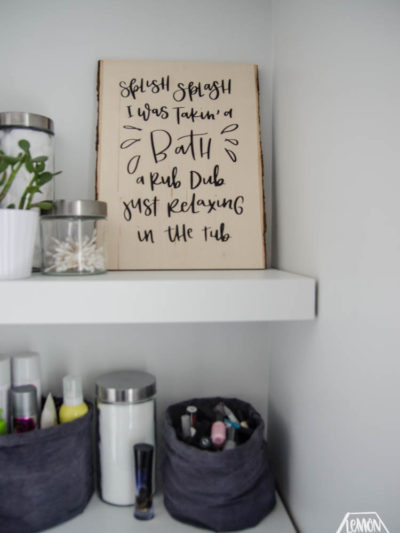 Splish Splash
I was Takin' a
Bath
a Rub Dub
just Relaxing
in the tub
LEMON